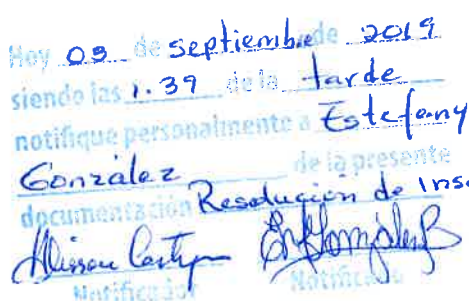 Hoy 03 de septiembre de 2019
siendo las 1.39 de la tarde
notifique personalmente a Estefany
González de la presente
documentación Resolución de Insc
Notificador Notificado